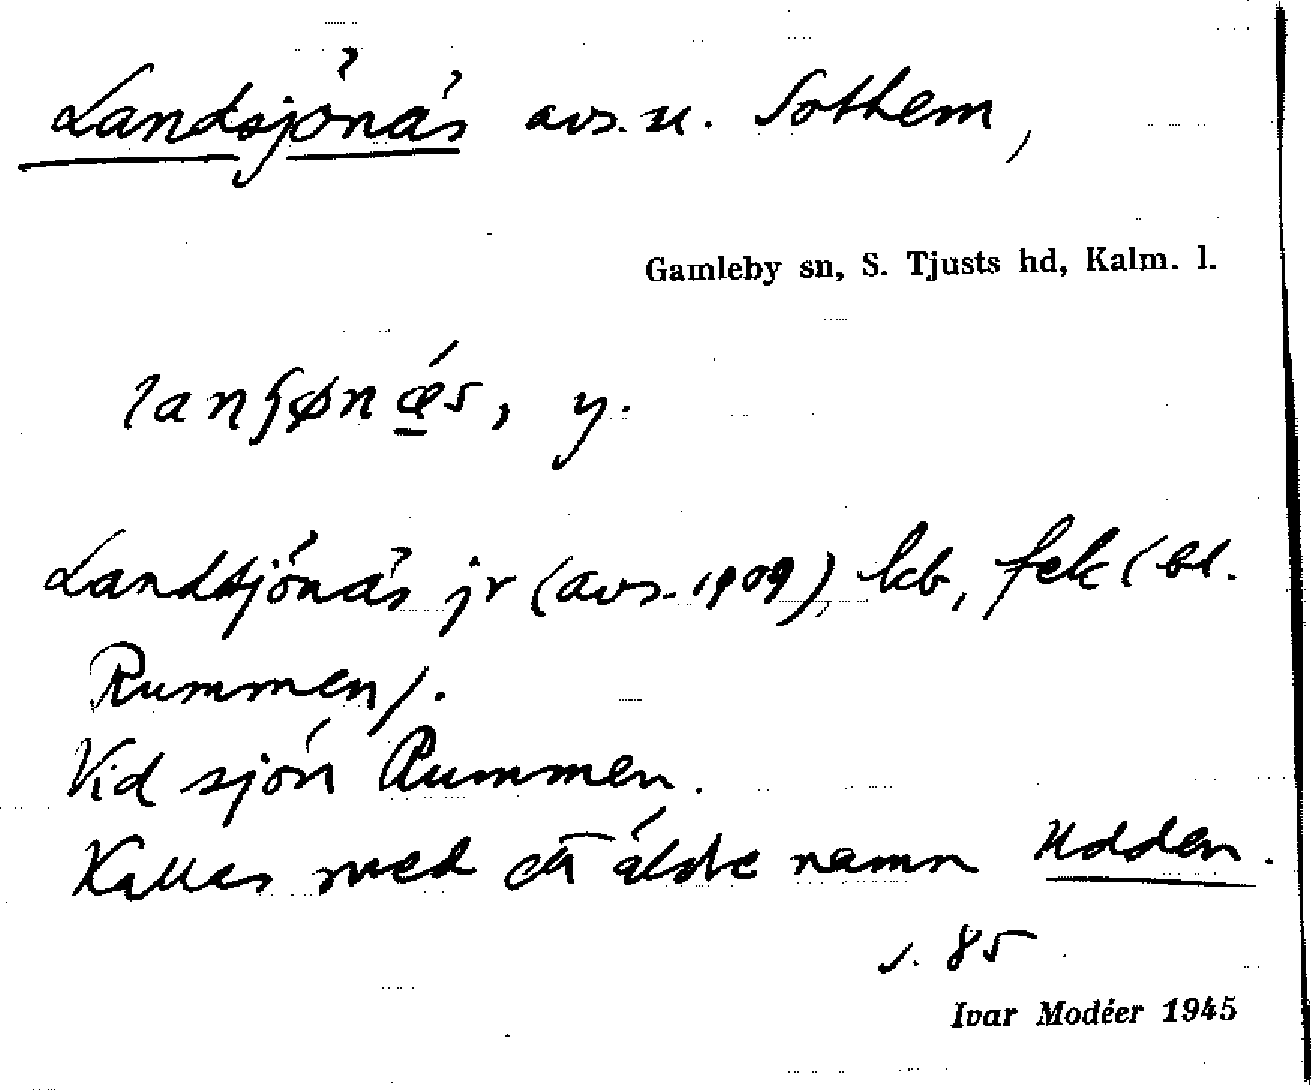 Landsjönäs avs. u. Sothem,
Gamleby sn, S. Tjusts hd, Kalm. l.
y.
Landsjönäs jr (avs. 1909), kb, fek (bl.
Rummen).
Vid sjön Rummen.
Kallas med ett äldre namn Udden.
s. 85
Ivar Modéer 1945